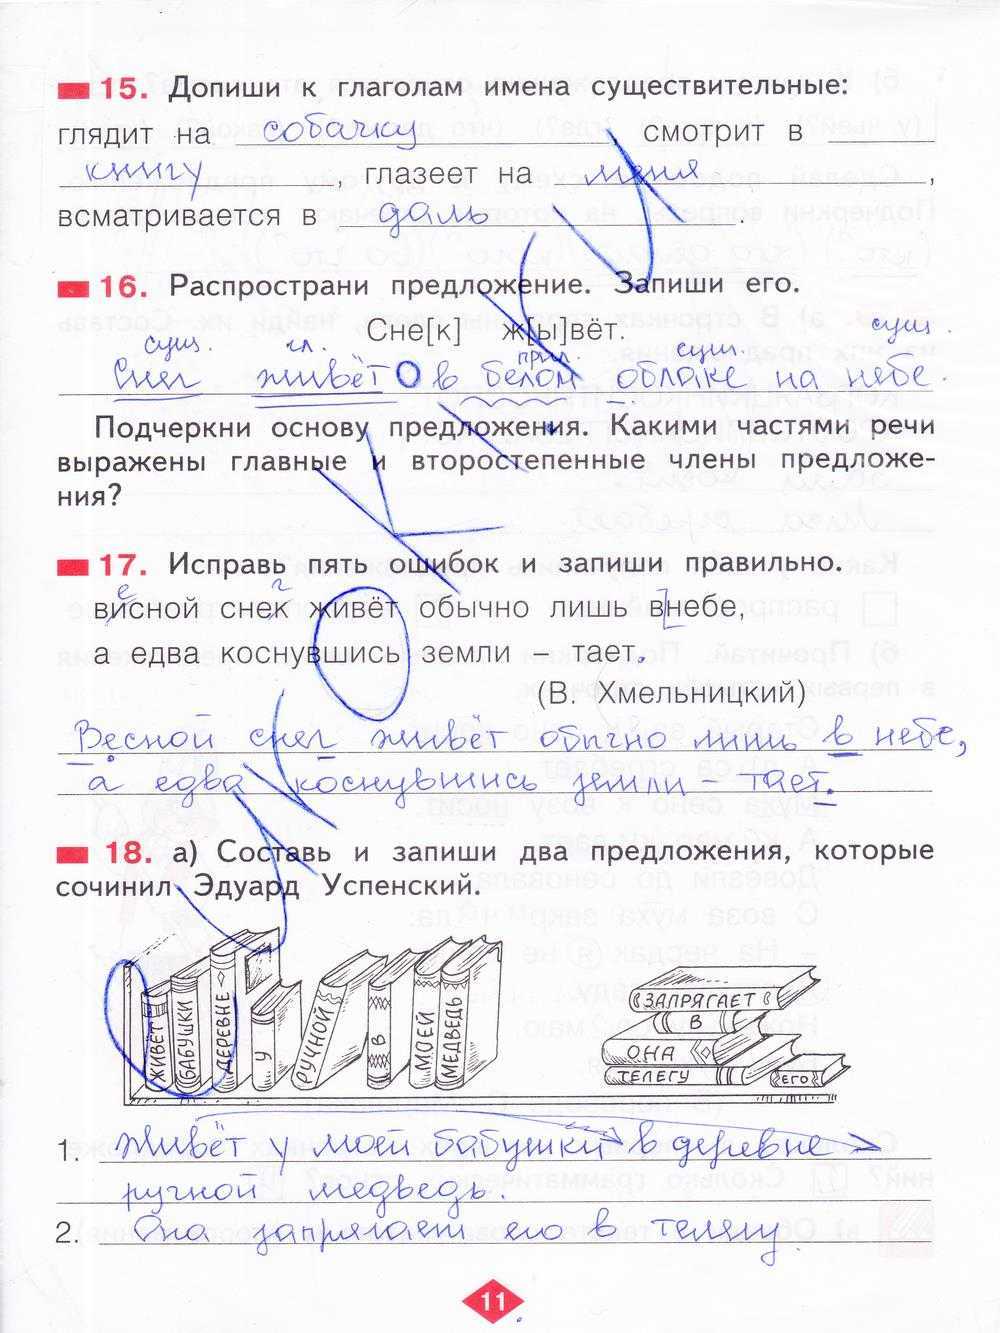 15. Допиши к глаголам имена существительные:
глядит на собачку смотрит в
книгу, глазеет на меня,
всматривается в даль.
16. Распространи предложение. Запиши его.
Сне[к] ж[ы]вёт.
сущ. гл. прил. сущ. сущ.
Снег живёт в белом облаке на небе.
Подчеркни основу предложения. Какими частями речи
выражены главные и второстепенные члены предложе-
ния?
17. Исправь пять ошибок и запиши правильно.
е г
висной снек живёт обычно лишь внебе,
а едва коснувшись земли – тает.
(В. Хмельницкий)
Весной снег живёт обычно лишь в небе,
а едва коснувшись земли – тает.
18. а) Составь и запиши два предложения, которые
сочинил Эдуард Успенский.
ЖИВЁТ БАБУШКИ ДЕРЕВНЕ У РУЧНОЙ В МОЕЙ МЕДВЕДЬ
ЗАПРЯГАЕТ
В
ОНА
ТЕЛЕГУ ЕГО
1. Живёт у моей бабушки в деревне
ручной медведь.
2. Она запрягает его в телегу
11